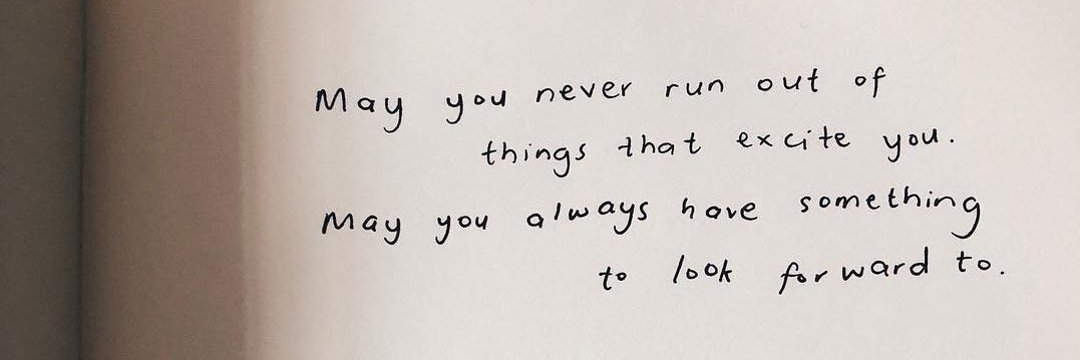 May you never run out of
things that excite you.
May you always have something
to look forward to.